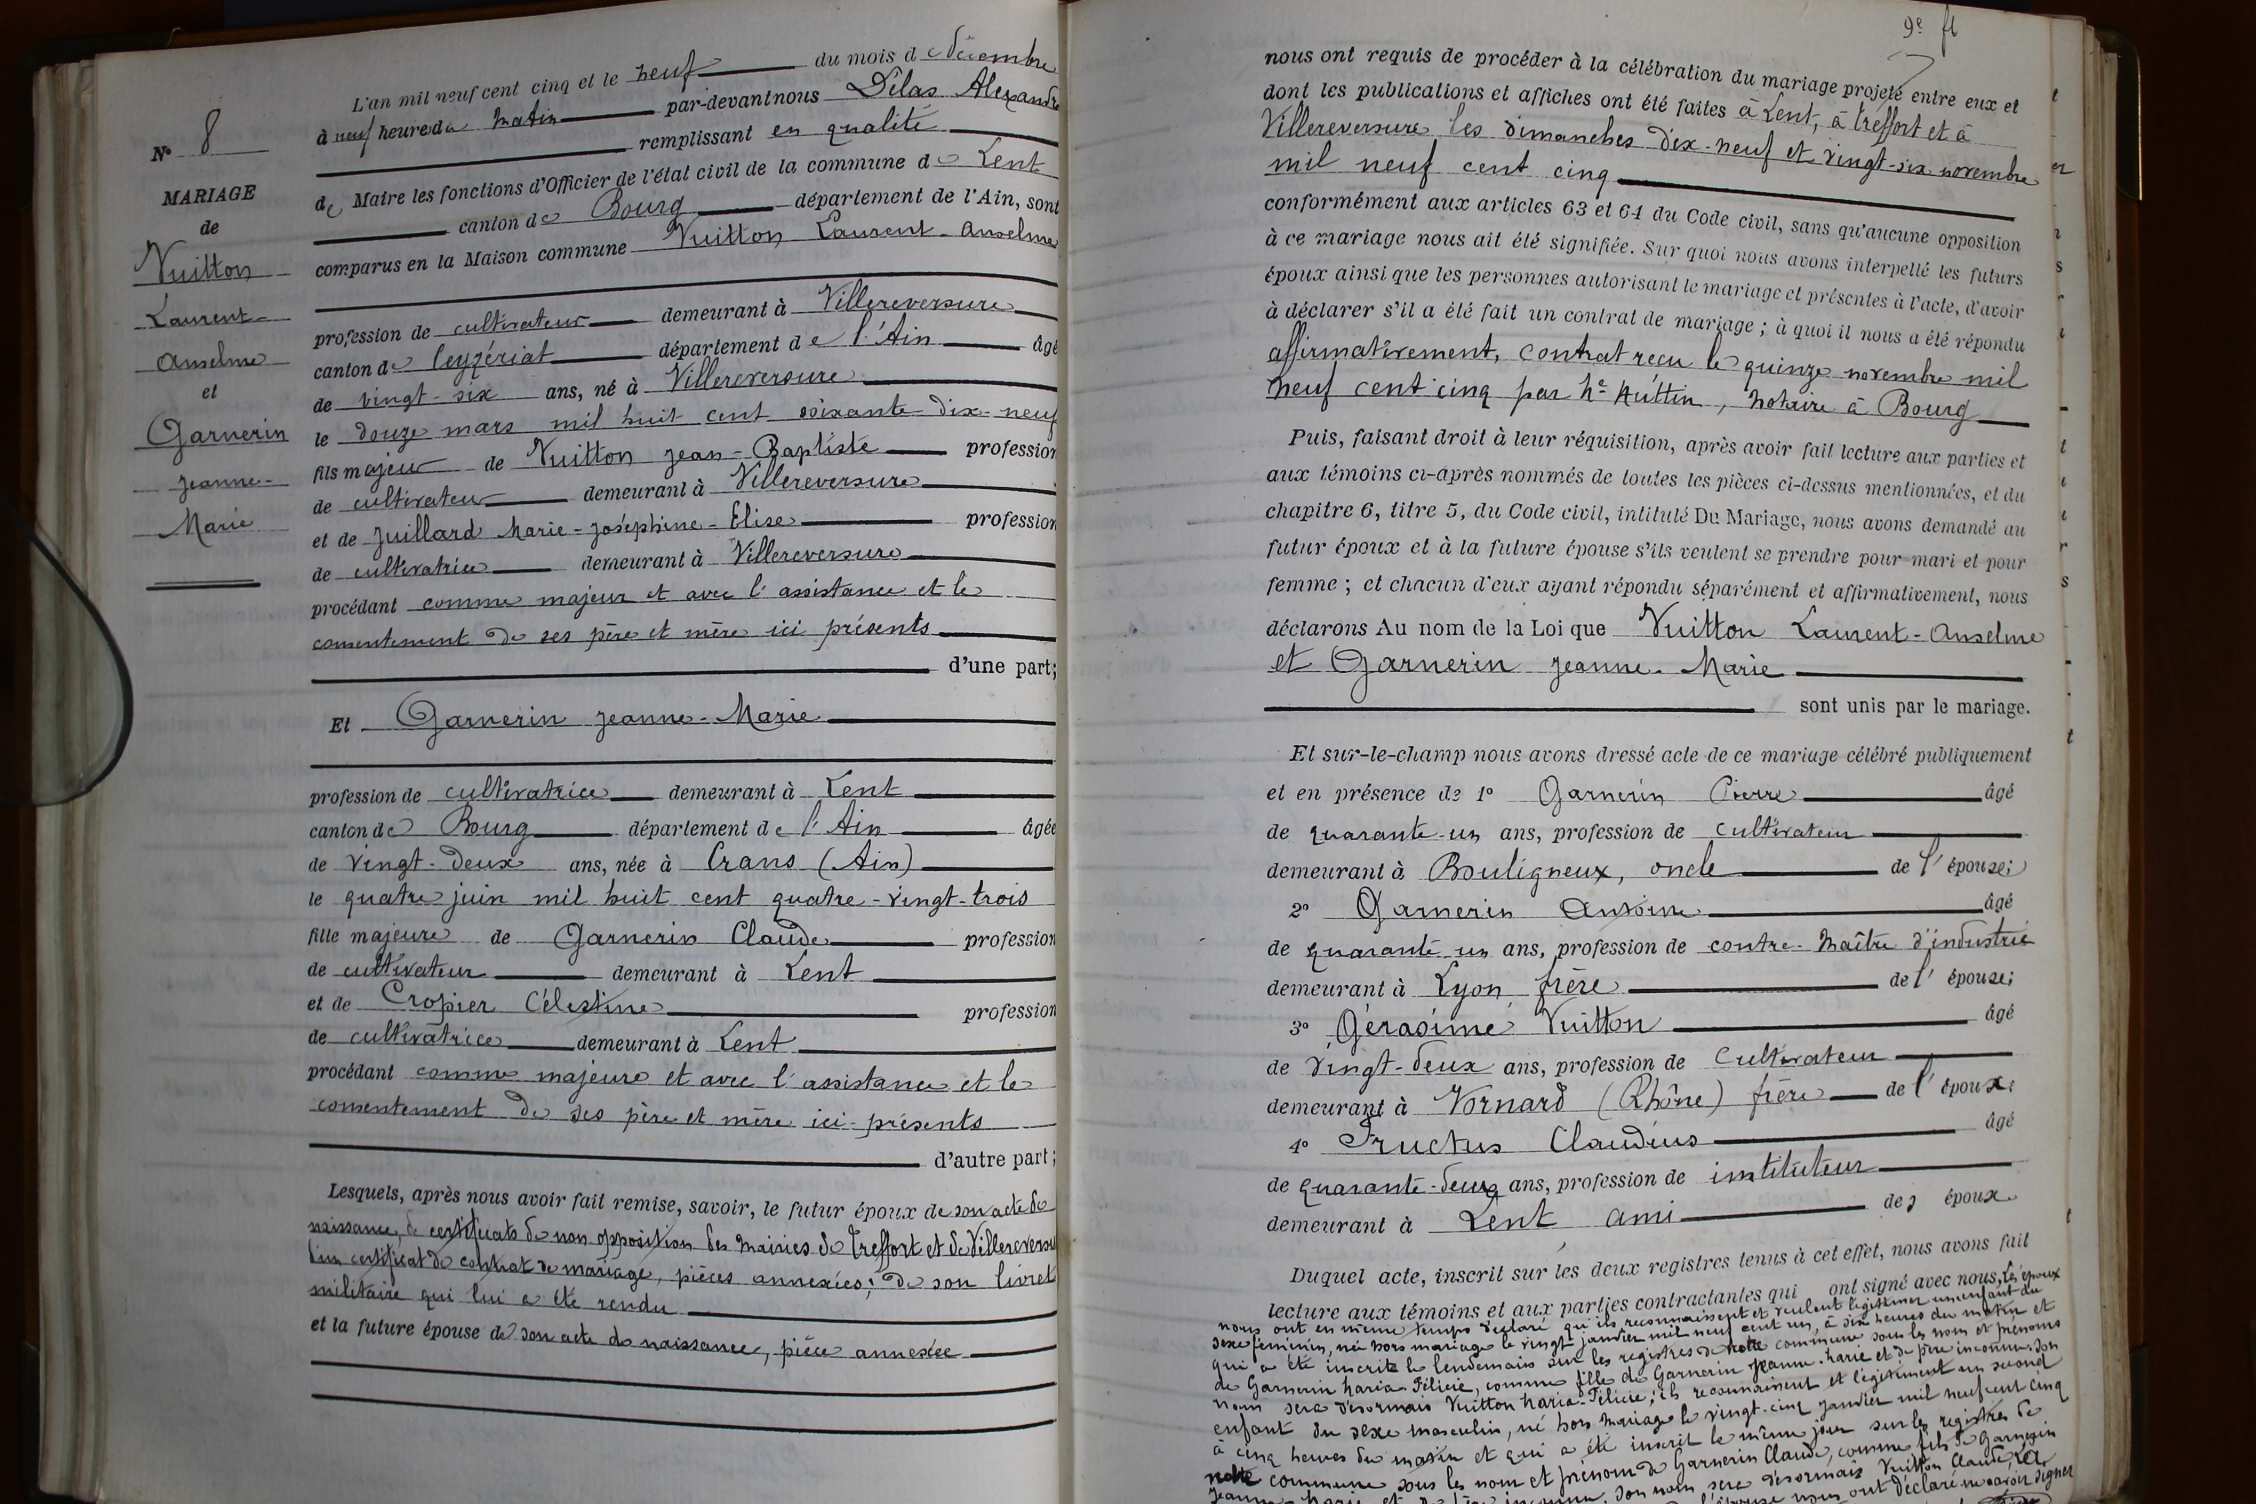 N° 8
MARIAGE
de
Vuitton
Laurent-
Anselme
et
Garnerin
Jeanne-
Marie
L'an mil neuf cent cinq et le neuf du mois de décembre
à neuf heures du matin par-devant nous Délas Alexandre
remplissant en qualité
de Maire les fonctions d'Officier de l'état civil de la commune de Lent
canton de Bourg département de l'Ain, sont
comparus en la Maison commune Vuitton Laurent-Anselme
profession de cultivateur demeurant à Villereversure
canton de Ceyzériat département de l'Ain âgé
de vingt-six ans, né à Villereversure
le douze mars mil huit cent soixante-dix-neuf
fils majeur de Vuitton Jean-Baptiste profession
de cultivateur demeurant à Villereversure
et de Juillard Marie-Joséphine-Elise profession
de cultivatrice demeurant à Villereversure
procédant comme majeur et avec l'assistance et le
consentement de ses père et mère ici présents
d'une part;
Et Garnerin Jeanne-Marie
profession de cultivatrice demeurant à Lent
canton de Bourg département de l'Ain âgée
de vingt-deux ans, née à Crans (Ain)
le quatre juin mil huit cent quatre-vingt-trois
fille majeure de Garnerin Claude profession
de cultivateur demeurant à Lent
et de Cropier Célestine profession
de cultivatrice demeurant à Lent
procédant comme majeure et avec l'assistance et le
consentement de ses père et mère ici-présents
d'autre part;
Lesquels, après nous avoir fait remise, savoir, le futur époux de son acte de
naissance, de certificats de non opposition des mairies de Treffort et de Villereversure
d'un certificat de contrat de mariage, pièces annexées; de son livret
militaire qui lui a été rendu
et la future épouse de son acte de naissance, pièce annexée
9e ft
nous ont requis de procéder à la célébration du mariage projeté entre eux et
dont les publications et affiches ont été faites à Lent, à Treffort et à
Villereversure les dimanches dix-neuf et vingt-six novembre
mil neuf cent cinq
conformément aux articles 63 et 64 du Code civil, sans qu'aucune opposition
à ce mariage nous ait été signifiée. Sur quoi nous avons interpellé les futurs
époux ainsi que les personnes autorisant le mariage et présentes à l'acte, d'avoir
à déclarer s'il a été fait un contrat de mariage; à quoi il nous a été répondu
affirmativement, contrat reçu le quinze novembre mil
neuf cent cinq par Me Huttin, notaire à Bourg
Puis, faisant droit à leur réquisition, après avoir fait lecture aux parties et
aux témoins ci-après nommés de toutes les pièces ci-dessus mentionnées, et du
chapitre 6, titre 5, du Code civil, intitulé Du Mariage, nous avons demandé au
futur époux et à la future épouse s'ils veulent se prendre pour mari et pour
femme; et chacun d'eux ayant répondu séparément et affirmativement, nous
déclarons Au nom de la Loi que Vuitton Laurent-Anselme
et Garnerin Jeanne-Marie
sont unis par le mariage.
Et sur-le-champ nous avons dressé acte de ce mariage célébré publiquement
et en présence de 1° Garnerin Pierre âgé
de quarante-un ans, profession de cultivateur
demeurant à Bouligneux, oncle de l'épouse;
2° Garnerin Antoine âgé
de quarante-un ans, profession de contre-maître d'industrie
demeurant à Lyon frère de l'épouse;
3° Gérasime Vuitton âgé
de vingt-deux ans, profession de cultivateur
demeurant à Vornard (Rhône) frère de l'époux;
4° Fructus Claudius âgé
de quarante-deux ans, profession de instituteur
demeurant à Lent ami des époux
Duquel acte, inscrit sur les deux registres tenus à cet effet, nous avons fait
lecture aux témoins et aux parties contractantes qui ont signé avec nous, Les époux
nous ont en même temps déclaré qu'ils reconnaissent et veulent légitimer un enfant du
sexe féminin, née hors mariage le vingt janvier mil neuf cent un, à six heures du matin et
qui a été inscrite le lendemain sur les registres de notre commune sous les nom et prénoms
de Garnerin Maria-Félicie, comme fille de Garnerin Jeanne-Marie et de père inconnu. Son
nom sera désormais Vuitton Maria-Félicie; ils reconnaissent et légitiment un second
enfant du sexe masculin, né hors mariage le vingt-cinq janvier mil neuf cent cinq
à cinq heures du matin et qui a été inscrit le même jour sur les registres de
notre commune sous les nom et prénom de Garnerin Claude, comme fils de Garnerin
Jeanne-Marie et de père inconnu. Son nom sera désormais Vuitton Claude,
l'épouse nous ont déclaré ne savoir signer